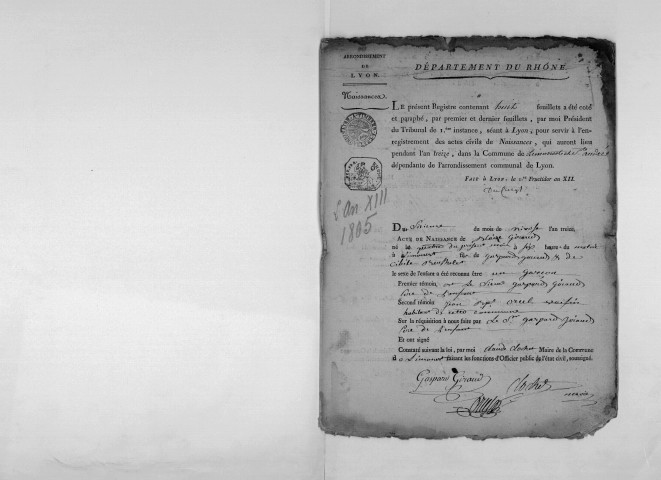 ARRONDISSEMENT
DE
LYON.
Naissances.
DÉPARTEMENT DU RHÔNE.
LE présent Registre contenant huit feuillets a été coté
et paraphé, par premier et dernier feuillets, par moi Président
du Tribunal de 1.ère instance, séant à Lyon, pour servir à l'en-
registrement des actes civils de Naissances, qui auront lieu
pendant l'an treize, dans la Commune de
dépendante de l'arrondissement communal de Lyon.
FAIT à LYON, le 1.er Fructidor an XII.
L'An XIII
1805
DU sixieme du mois de nivose l'an treize,
ACTE DE NAISSANCE de Giraud
né le du present mois à six heures du matin
à Limonest fils de gaspard giraud & de
le sexe de l'enfant a été reconnu être un garcon
Premier témoin, est le Sieur gaspard Giraud
Pere de l'enfant
Second témoin jean
habitant de cette commune
Sur la réquisition à nous faite par Le Sr gaspard Giraud
Pere de l'enfant
Et ont signé
Constaté suivant la loi, par moi claude Maire de la Commune
de Limonest faisant les fonctions d'Officier public de l'état civil, soussigné.
Gaspard Giraud